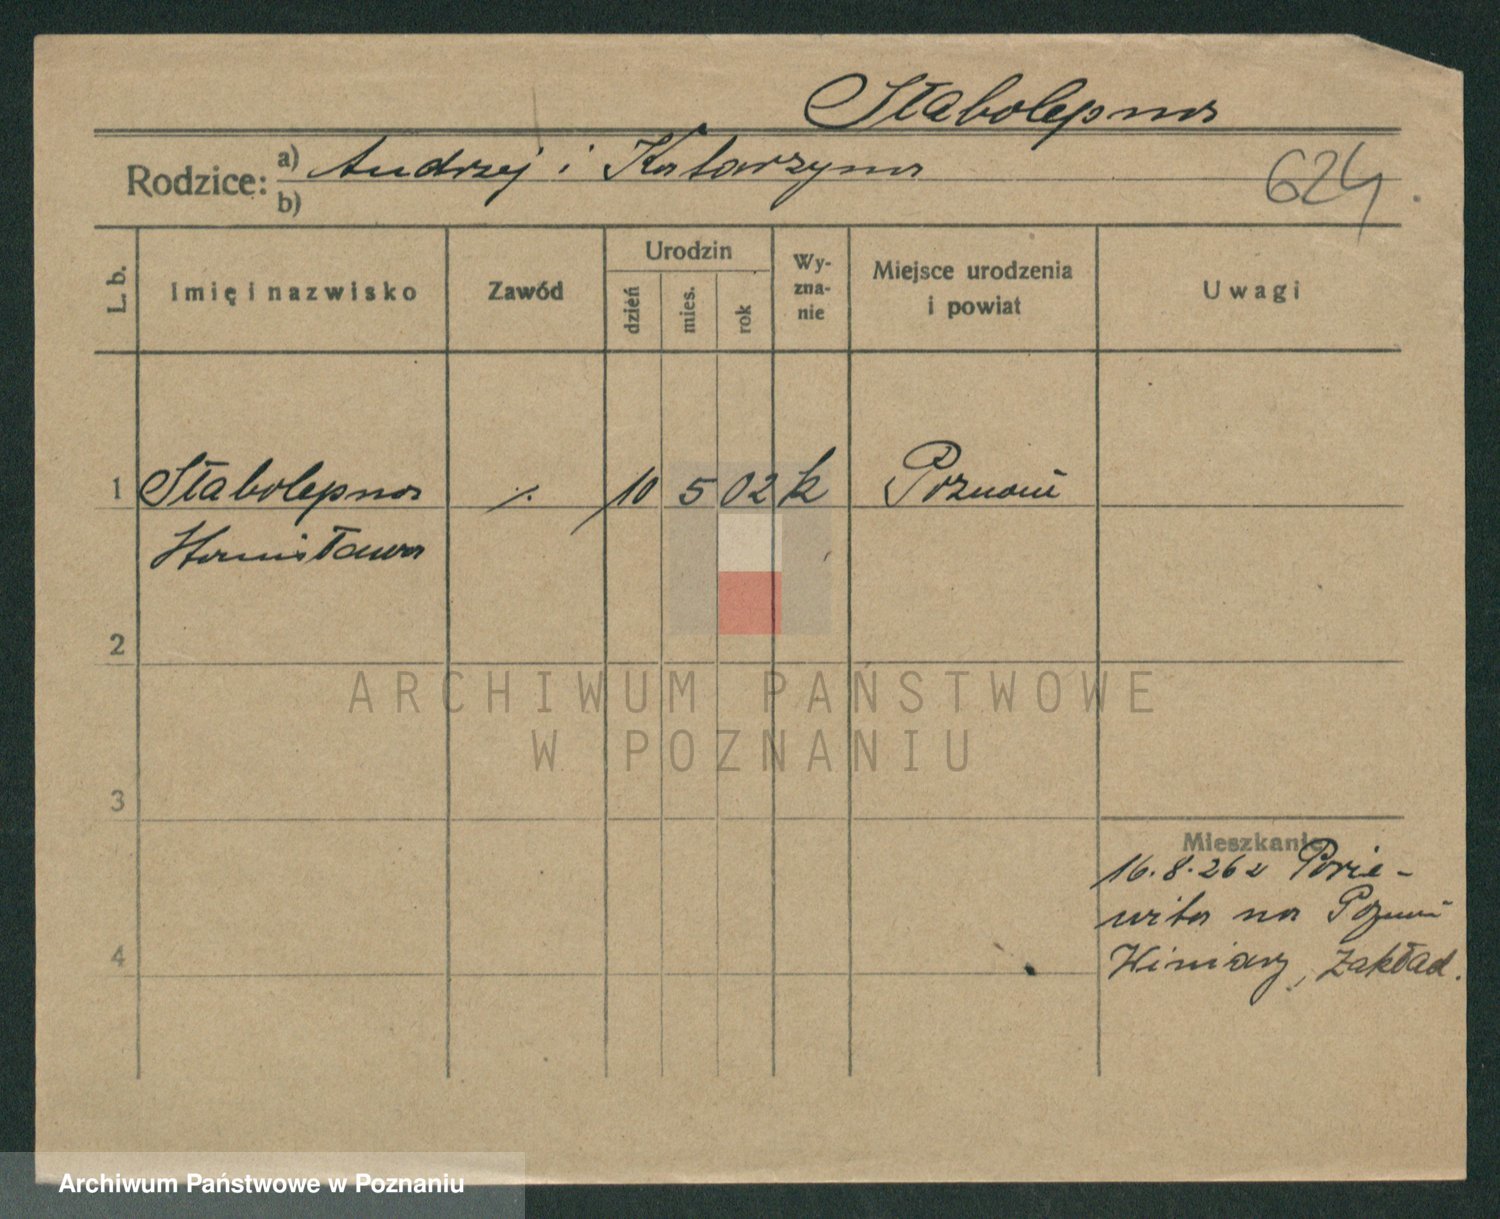 Słabolepna
Rodzice: a) Andrzej i Katarzyna
b)
624
L. b.
Imię i nazwisko
Zawód
Urodzin
dzień
mies.
rok
Wy-
zna-
nie
Miejsce urodzenia
i powiat
Uwagi
1 Słabolepna ./. 10 5 02 k Poznań
Stanisława
2
ARCHIWUM PAŃSTWOWE
W POZNANIU
3
Mieszkanie
16.8.26 z Powie-
wita na Poznań
Winiary, Zakład.
4
Archiwum Państwowe w Poznaniu